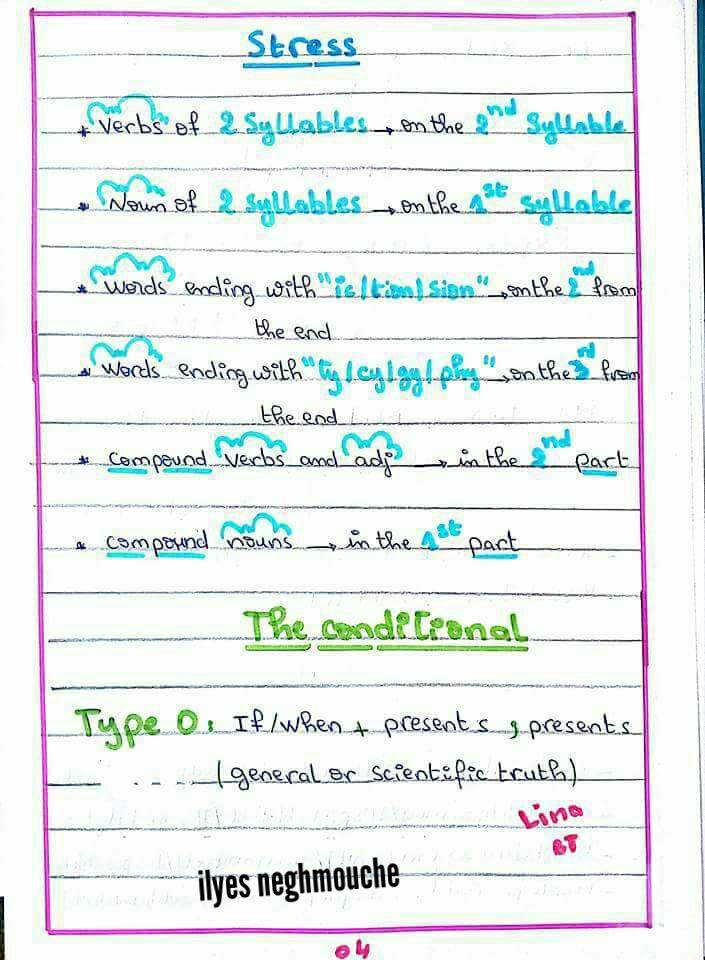 Stress
* Verbs of 2 Syllables → on the 2nd Syllable
* Noun of 2 Syllables → on the 1st Syllable
* words ending with "ic/tion/sion" → on the 2nd from
the end
* Words ending with "ty/cy/gy/phy" → on the 3rd from
the end
* compound verbs and adj → in the 2nd part
* compound nouns → in the 1st part
The conditional
Type 0: If/when + present s, present s
(general or scientific truth)
Lina
BT
ilyes neghmouche
04